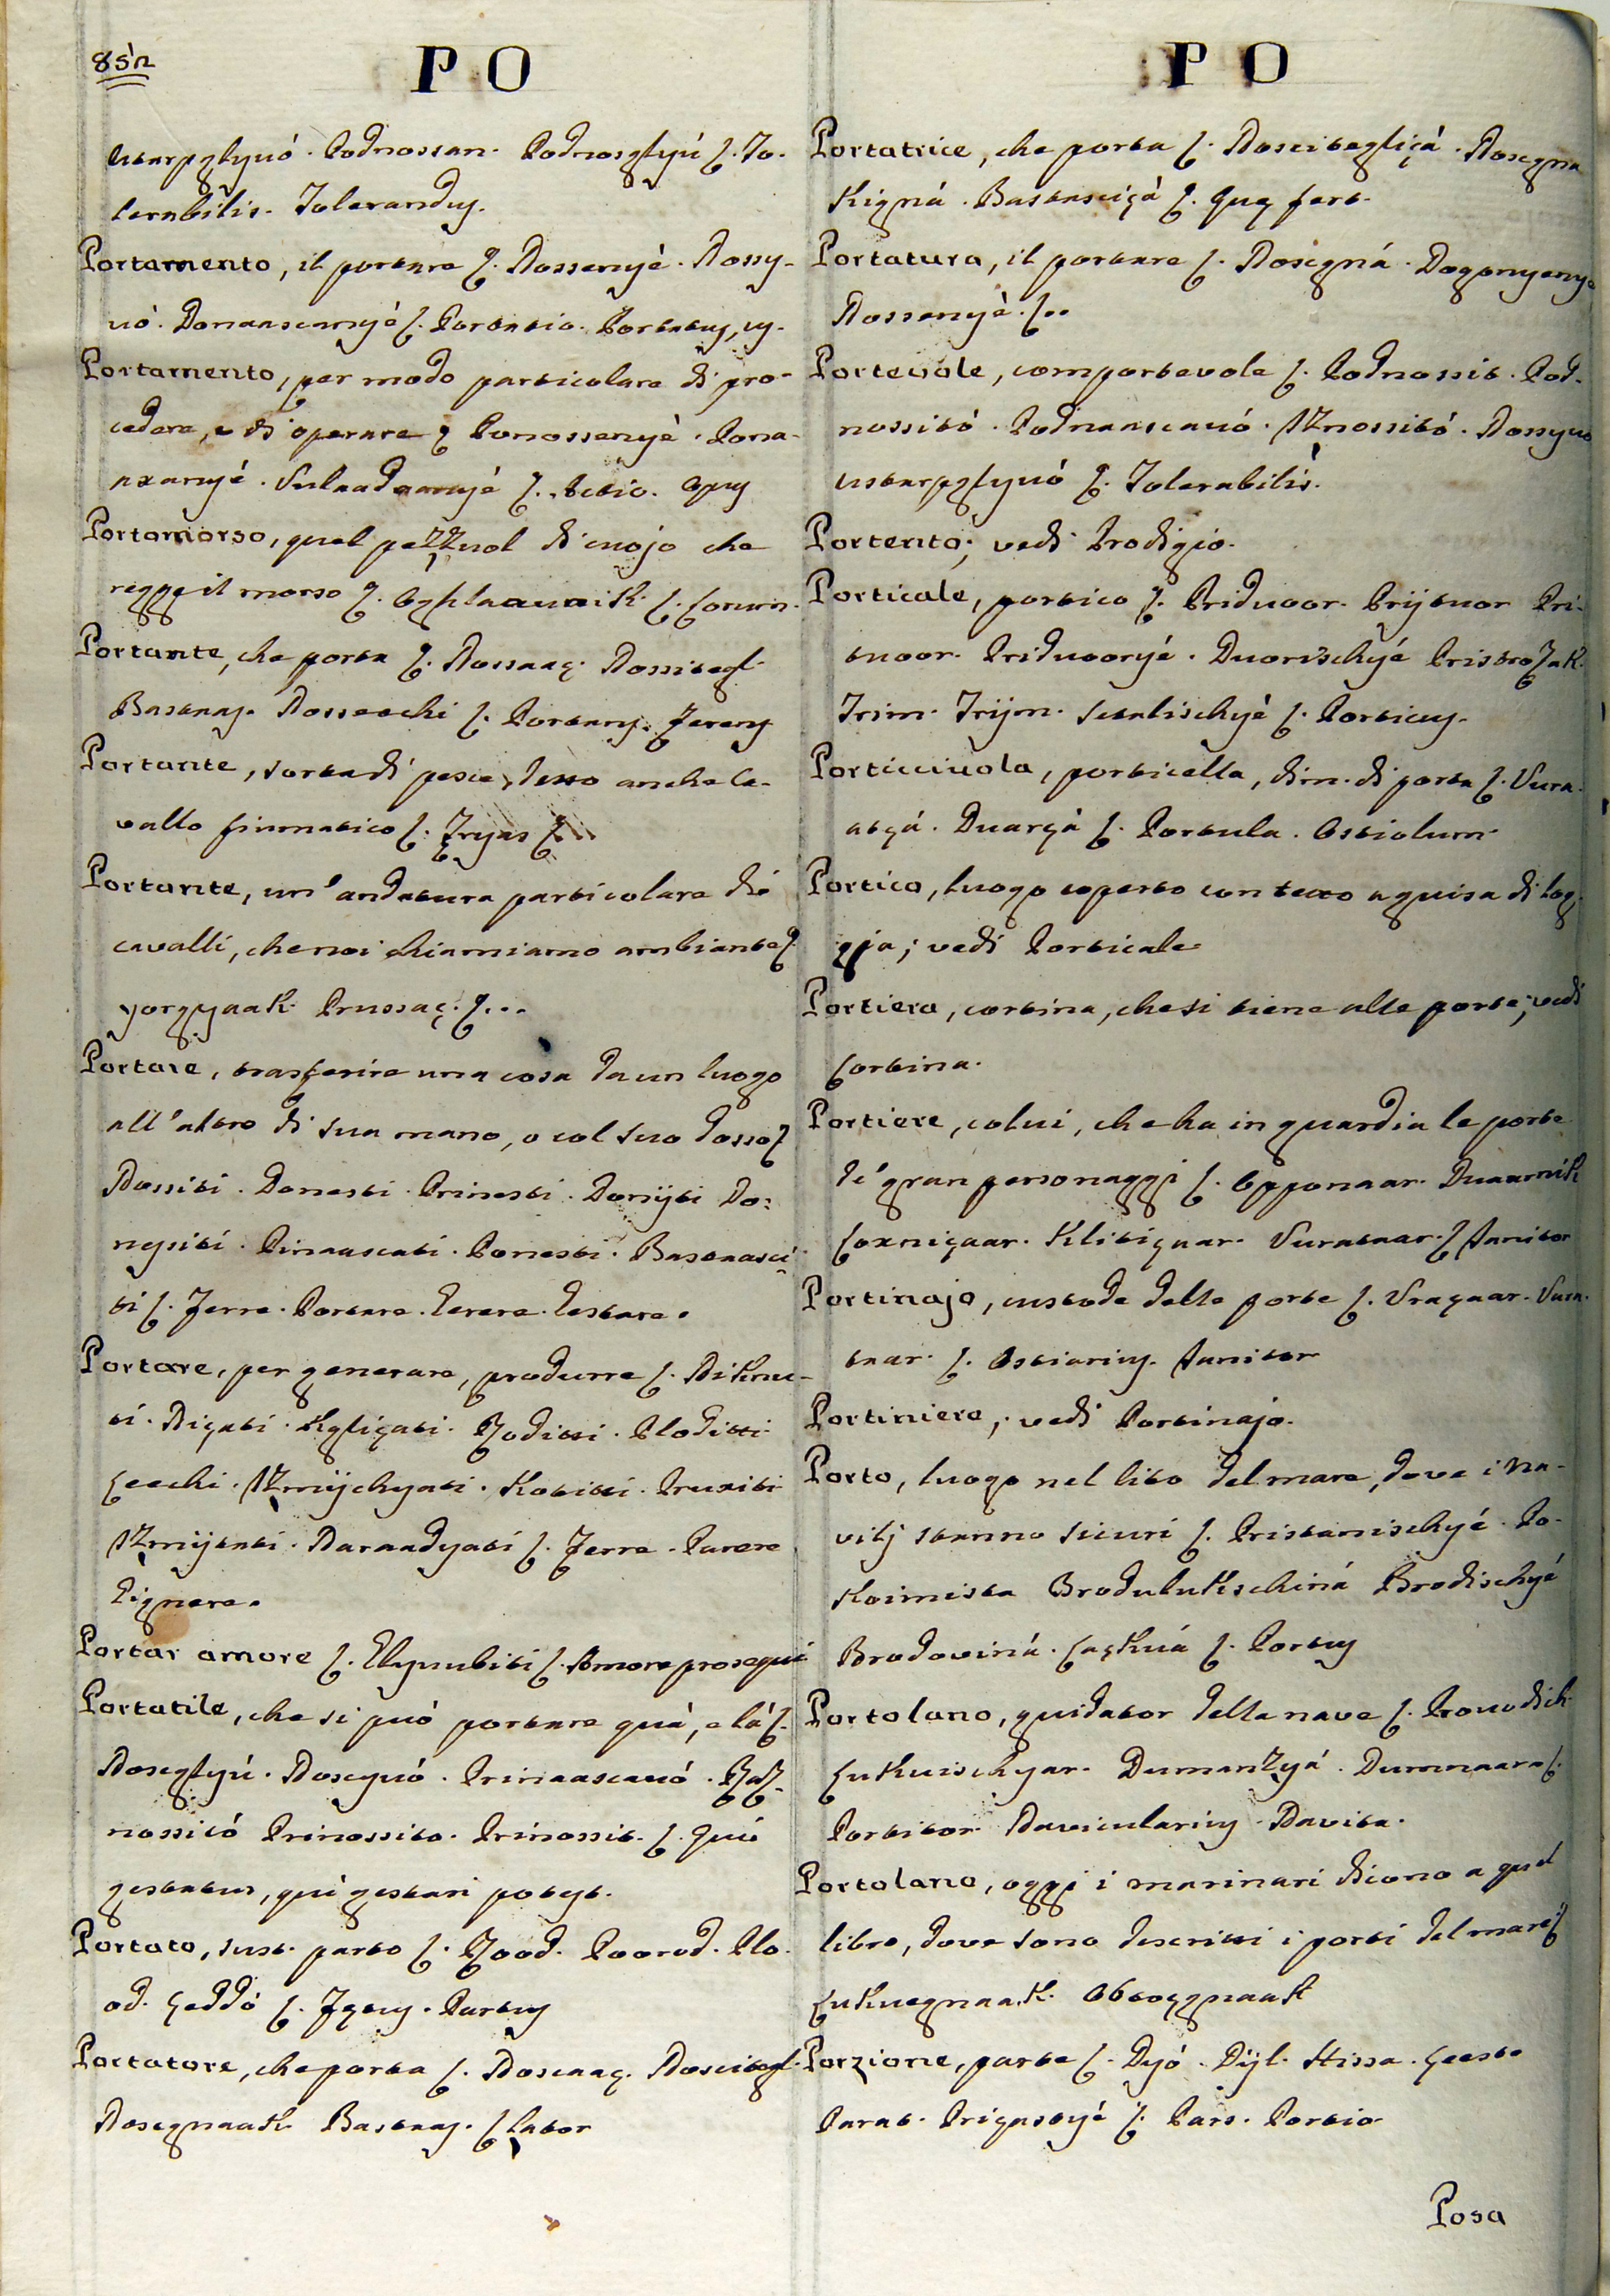 852
PO
ustarpgljuó. Podnossan. Podnosgljú S. To-
lerabilis. Tolerandus.
Portamento, il portare S. Nossenyè. Nossy-
uó. Donaascanyé S. Portatio. Portatus, us.
Portamento, per modo particolare di pro-
cedere, e di operare S. Ponossenyè. Pona-
axanyé. Vuladaanyé S. Actio. Opus
Portamorso, quel pezzuol di cuojo che
regge il morso S. Oghlaaunik. S. Lorum.
Portante, che porta S. Nossaaç. Nossitegl.
Bastaas. Nosseechi S. Portans. Ferens
Portante, sorta di pesce, detto anche ca-
vallo fiumatico S.
Portante, un' andatura particolare di
cavalli, che noi chiamiamo ambiante S.
yorgyaak. Prussaç. S...
Portare, trasferire una cosa da un luogo
all'altro di sua mano, o col suo dosso S.
Nossiti. Donesti. Prinesti. Donijti Do-
nositi. Pinaascati. Ponesti. Bastasci-
ti S. Ferre. Portare. Gerere. Gestare.
Portare, per generare, produrre S. Niknu-
ti. Niçati. Kgliçati. Roditi. Ploditi
çeechi. Izmijchyati. Kotiti. Pruxiti
Izmijtati. Naraadyati S. Ferre. Parere
Gignere.
Portar amore S. Glyuubiti S. Amore prosequi
Portatile, che si può portare quà, e là S.
Nosegljú. Nosegnó. Prinaascauó. Raz-
nossitó Prinossito. Prinossit. S. Qui
gestatus, qui gestari potest.
Portato, sust. parto S. Rood. Poorod. Plo-
od. çeddó S. Fętus. Partus
Portatore, che porta S. Noscaaç. Noscitegl.
Nosegnaak Bastaas. S. Lator
PO
Portatrice, che porta S. Noscitegliçá. Nosegna
Kigná. Bastasciçà S. Quę fert.
Portatura, il portare S. Nosegná. Dogonyenye
Nossenyè. S..
Portevole, comportevole S. Podnossit. Pod-
nossitó. Podnaascauó. Iznossitó. Nossyuo
ustarpgljuó S. Tolerabilis.
Portento; vedi Prodigio.
Porticale, portico S. Priduoor. Prijtuor Pri-
tuoor. Priduooryé. Duorischyé Pristrozak.
Trim. Trijm. Scetalischyè S. Porticus.
Porticciuola, porticella, dim. di porta S. Vura-
atçá. Duarçà S. Portula. Ostiolum.
Portico, luogo coperto con tetto a guisa di log-
gja; vedi Porticale
Portiera, cortina, che si tiene alle porte; vedi
Cortina.
Portiere, colui, che ha in guardia le porte
de' gran personaggi S. Opponaar. Duaarnik
Loxniçaar. Kliticaar. Vurataar. S. Janitor
Portinajo, custode delle porte S. Vraçaar. Vura-
taar. S. Ostiarius. Janitor
Portiniere; vedi Portinajo.
Porto, luogo nel lito del mare, dove i na-
vilj stanno sicuri S. Pristanischyé. Po-
koimista Brodulukschiná Brodischyé
Brodoviná. Laçkuá S. Portus
Portolano, guidator della nave S. Prouodich
Lukuischyar. Dumanzyá. Dumnaara S.
Portitor Navicularius. Navita.
Portolano, oggi i marinari dicono a quel
libro, dove sono descritti i porti del mare S.
Lukuegnaak. Obtoggnaak
Porzione, parte S. Dyó. Dijl. Hissa. çeesto
Parat. Priçastyé S. Pars. Portio
Posa